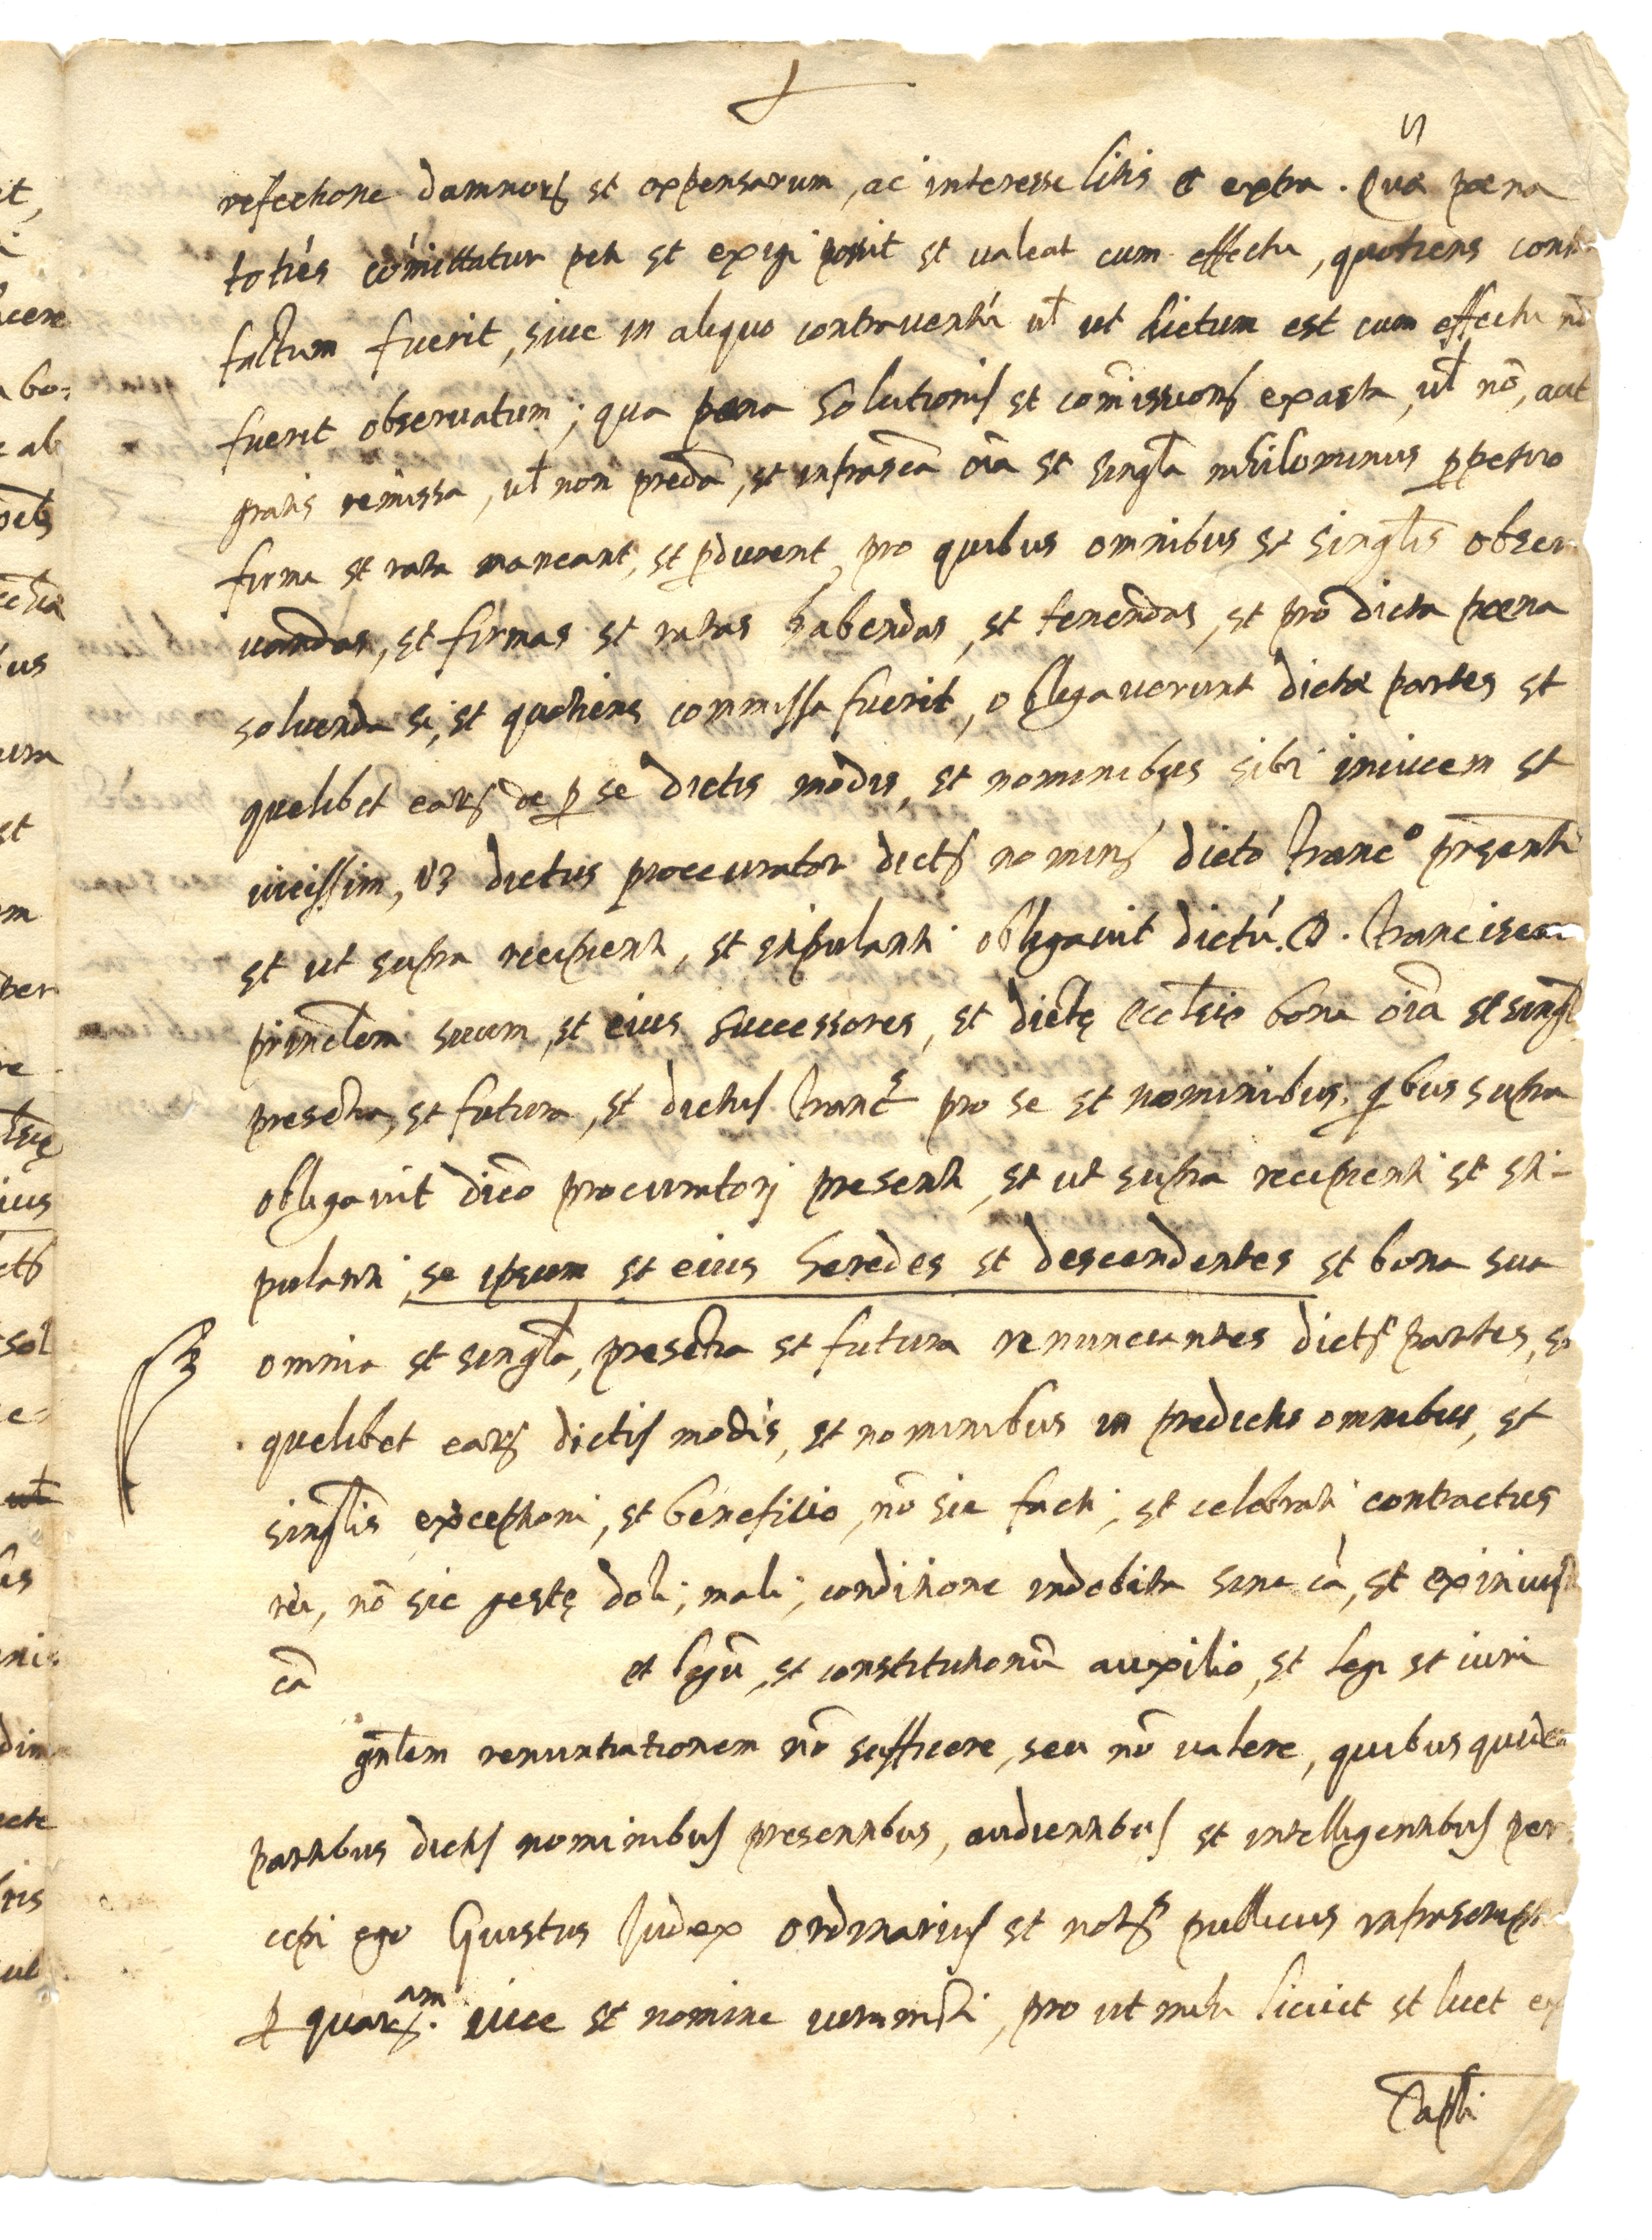 refectione damnorȝ et expensarum, ac interesse litis et extra. Quæ pœna
totiés cómittatur peti et exigi possit et ualeat cum effectu, quotiens contra
factum fuerit, siue in aliquo contrauentú ul̃ ut dictum est cum effectu nõ
fuerit obseruatum; qua pœna solutionis et comĩssionis exacta, ul̃ nõ, aut
gratis remissa, ul̃ non predã, et infrascã oĩa et singl̃a nihilominus ꝑpetuo
firma et rata maneant, et ꝑdurent, pro quibus omnibus et singl̃is obser
uandas, et firmas et ratas habendas, et tenendas, et pro dicta pœna
soluenda si, et quotiens commissa fuerit, obligauerunt dictæ partes et
quelibet earȝ de ꝑ se dictis modis, et nominibus sibi inuicem et
uicissim, uȝ dictus procurator dictis nominis dicto Franc.º presenti
et ut supra recipienti, et stipulanti obligauit dictú. D. Franciscum
princl̃em suum, et eius successores, et dictę eccl̃sie bona oĩa et singl̃
presentia, et futura, et dictus Franc.s pro se et nominibus, qbus supra
obligauit dicõ procuratorj presenti, et ut supra recipienti et sti-
pulanti, se ipsum et eius heredes et descendentes et bona sua
omnia et singl̃a, presentia et futura renunciantes dictę partes, et
quelibet earȝ dictis modis, et nominibus in predictis omnibus, et
singl̃is exceptioni, et benefitio, nõ sic facti, et celebrati contractus
rei, nõ sic gestę doli, mali, conditione indebita sine cã, et ex iniusta
cã et legũ, et constitutionũ auxilio, et legi et iuri
gñlem renuntiationem nõ sufficere, seu nõ ualere, quibus quidem
partibus dictis nominibus presentibus, audientibus et intelligentibus per
cepi ego Giustus Judex ordinarius et notȝ publicus infrascriptus
ꝑ quarȝ.am uice et nomine iuramẽti, pro ut mihi licuit et licet ex
Capl̃i